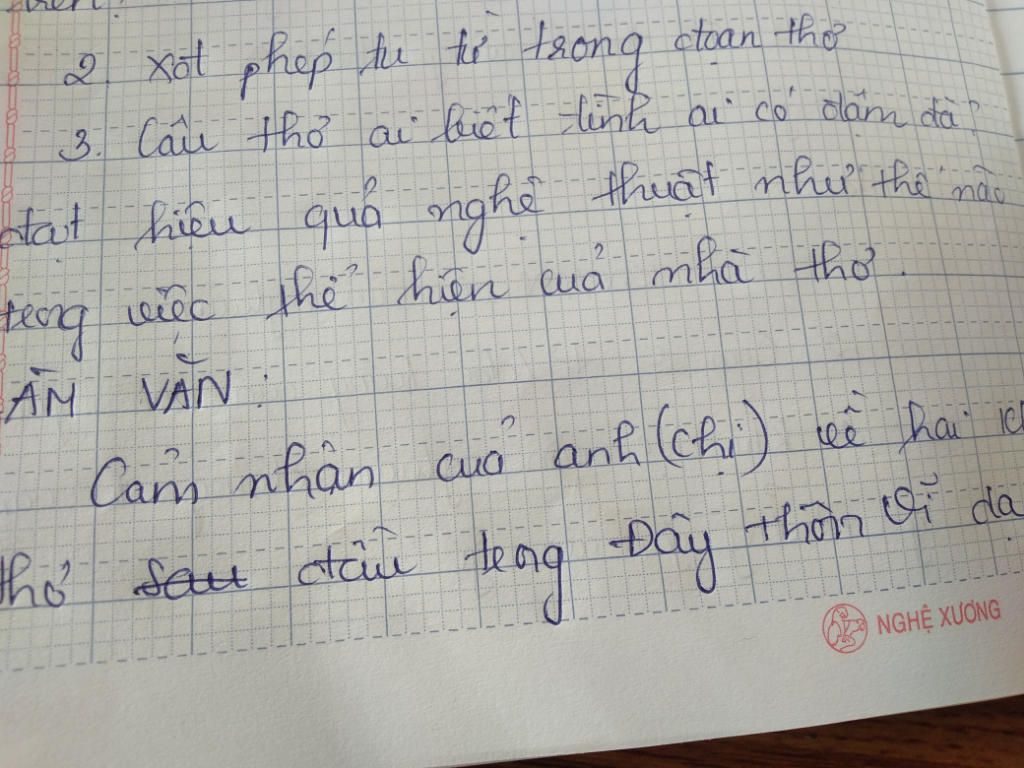 2. xét phép tu từ trong đoạn thơ
3. Câu thơ ai biết tình ai có đâm đà?
đạt hiệu quả nghệ thuật như thế nào
trong việc thể hiện cuả nhà thơ.
ÀM VĂN:
Cảm nhân cuả anh (chị) về hai
thơ sau đầu trong Đây thôn Vĩ dạ
NGHỆ XƯƠNG